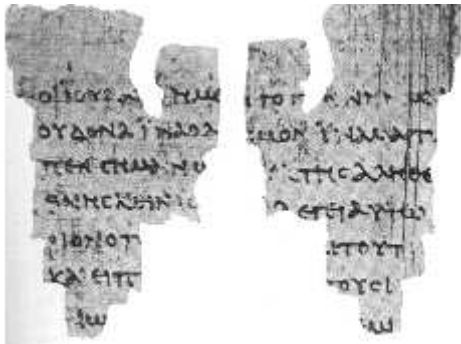 ΟΙΙΟΥΔΑΙ ΗΜΕ
ΟΥΔΕΝΑΪΝΑΟΛ
ΠΕΝϹΗΜΑΙΝΩ
ΘΝΗϹΚΕΙΝΙϹ
ΡΙΟΝΟΠ
ΚΑΙΕΙΠ
ΑΙΩ
ΤΟΓ ΝΝΗΜΑΙ
ϹΜΟΝΪΝΑΜΑΡΤΥ
ΤΗϹΑΛΗΘΕ
ΛΕΓΕΙΑΥΤΩ
ΙΤΟΥΤ
ΤΟΥϹΙ